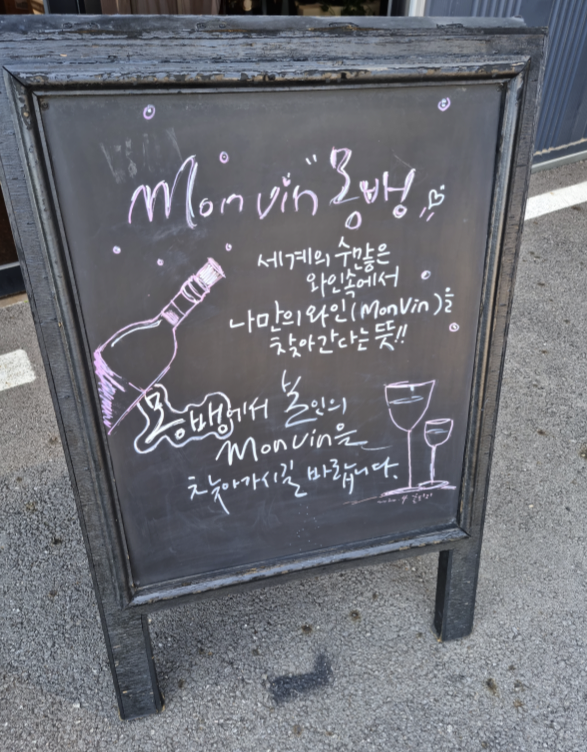 Monvin" 몽뱅!
세계의 수많은
와인속에서
나만의 와인(MonVin)을
찾아간다는 뜻!!
몽뱅에서 본인의
Monvin을
찾아가시길 바랍니다.